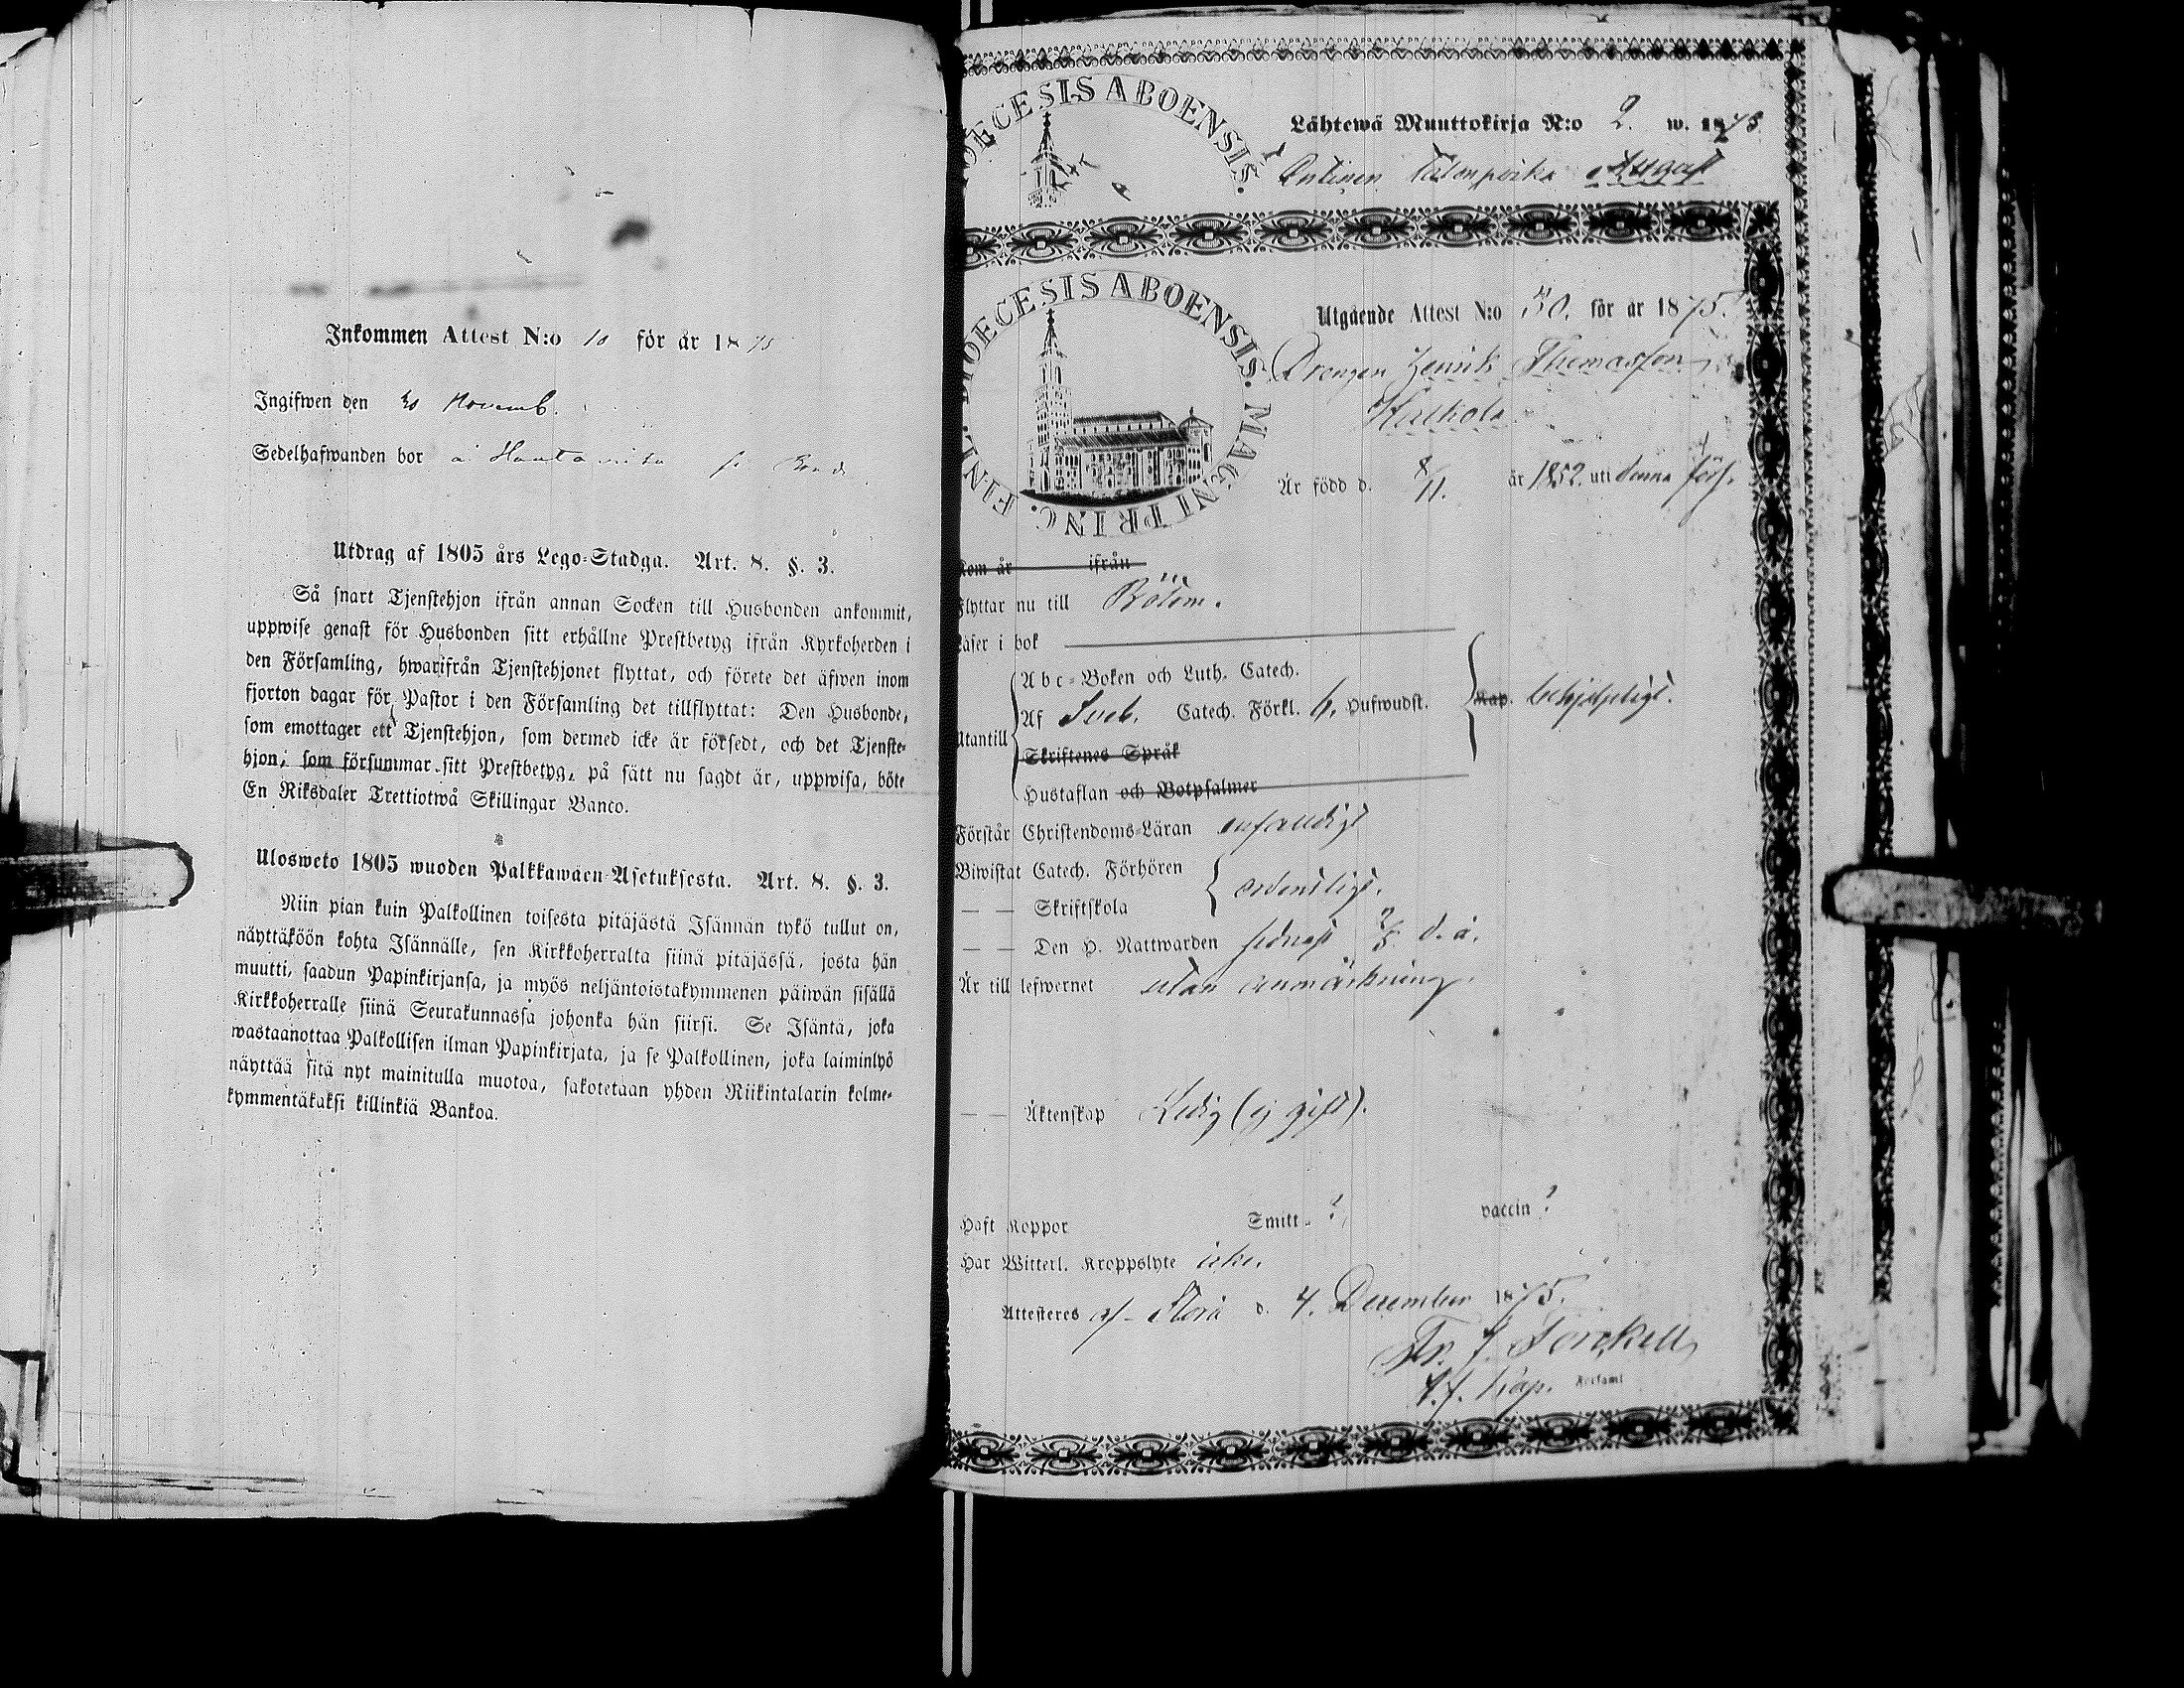 Inkommen Attest N:o 10 för år 1875
Ingifwen den 30 Novemb.
Sedelhafwanden bor å
Utdrag af 1805 års Lego-Stadga. Art. 8. §. 3.
Så snart Tjenstehjon ifrån annan Socken till Husbonden ankommit,
uppwise genast för Husbonden sitt erhållne Prestbetyg ifrån Kyrkoherden i
den Församling, hwarifrån Tjenstehjonet flyttat, och förete det äfwen inom
fjorton dagar för Pastor i den Församling det tillflyttat: Den Husbonde,
som emottager ett Tjenstehjon, som dermed icke är försedt, och det Tjenste-
hjon, som försummar sitt Prestbetyg, på sätt nu sagdt är, uppwisa, böte
En Riksdaler Trettiotwå Skillingar Banco.
Ulosweto 1805 wuoden Palkkawäen-Asetuksesta. Art. 8. §. 3.
Niin pian kuin Palkollinen toisesta pitäjästä Isännän tykö tullut on,
näyttäköön kohta Isännälle, sen Kirkkoherralta siinä pitäjässä, josta hän
muutti, saadun Papinkirjansa, ja myös neljäntoistakymmenen päiwän sisällä
Kirkkoherralle siinä Seurakunnassa johonka hän siirsi. Se Isäntä, joka
wastaanottaa Palkollisen ilman Papinkirjata, ja se Palkollinen, joka laiminlyö
näyttää sitä nyt mainitulla muotoa, sakotetaan yhden Riikintalarin kolme-
kymmentäkaksi killinkiä Bankoa.
OECESIS ABOENSIS.
Lähtewä Muuttokirja N:o 2. w. 18
Talonpoika August
FINL. DIOECESIS ABOENSIS. MAGNI PRINC.
Utgående Attest N:o för år 1875.
Drengen Henrik Thomasson
Är född d. 8/11. år 1852. uti denna förs.
Kom år ifrån
Flyttar nu till
Läser i bok
Abc-Boken och Luth. Catech.
Utantill Af Sveb. Catech. Förkl. 6. Hufwudst. Kap. behjelpligt.
Skriftenes Språk
Hustaflan och Botpsalmer
Förstår Christendoms-Läran enfaldigt
Biwistat Catech. Förhören
— — Skriftskola ordentligt.
— — Den H. Nattwarden sednast d. å.
Är till lefwernet utan anmärkning.
— — Äktenskap Ledig (ej gift).
Haft Koppor Smitt- ? vaccin ?
Har Witterl. Kroppslyte icke.
Attesteres af d. 4. December 1875.
Fr. J. Forckell
t.f. Kap. Församl